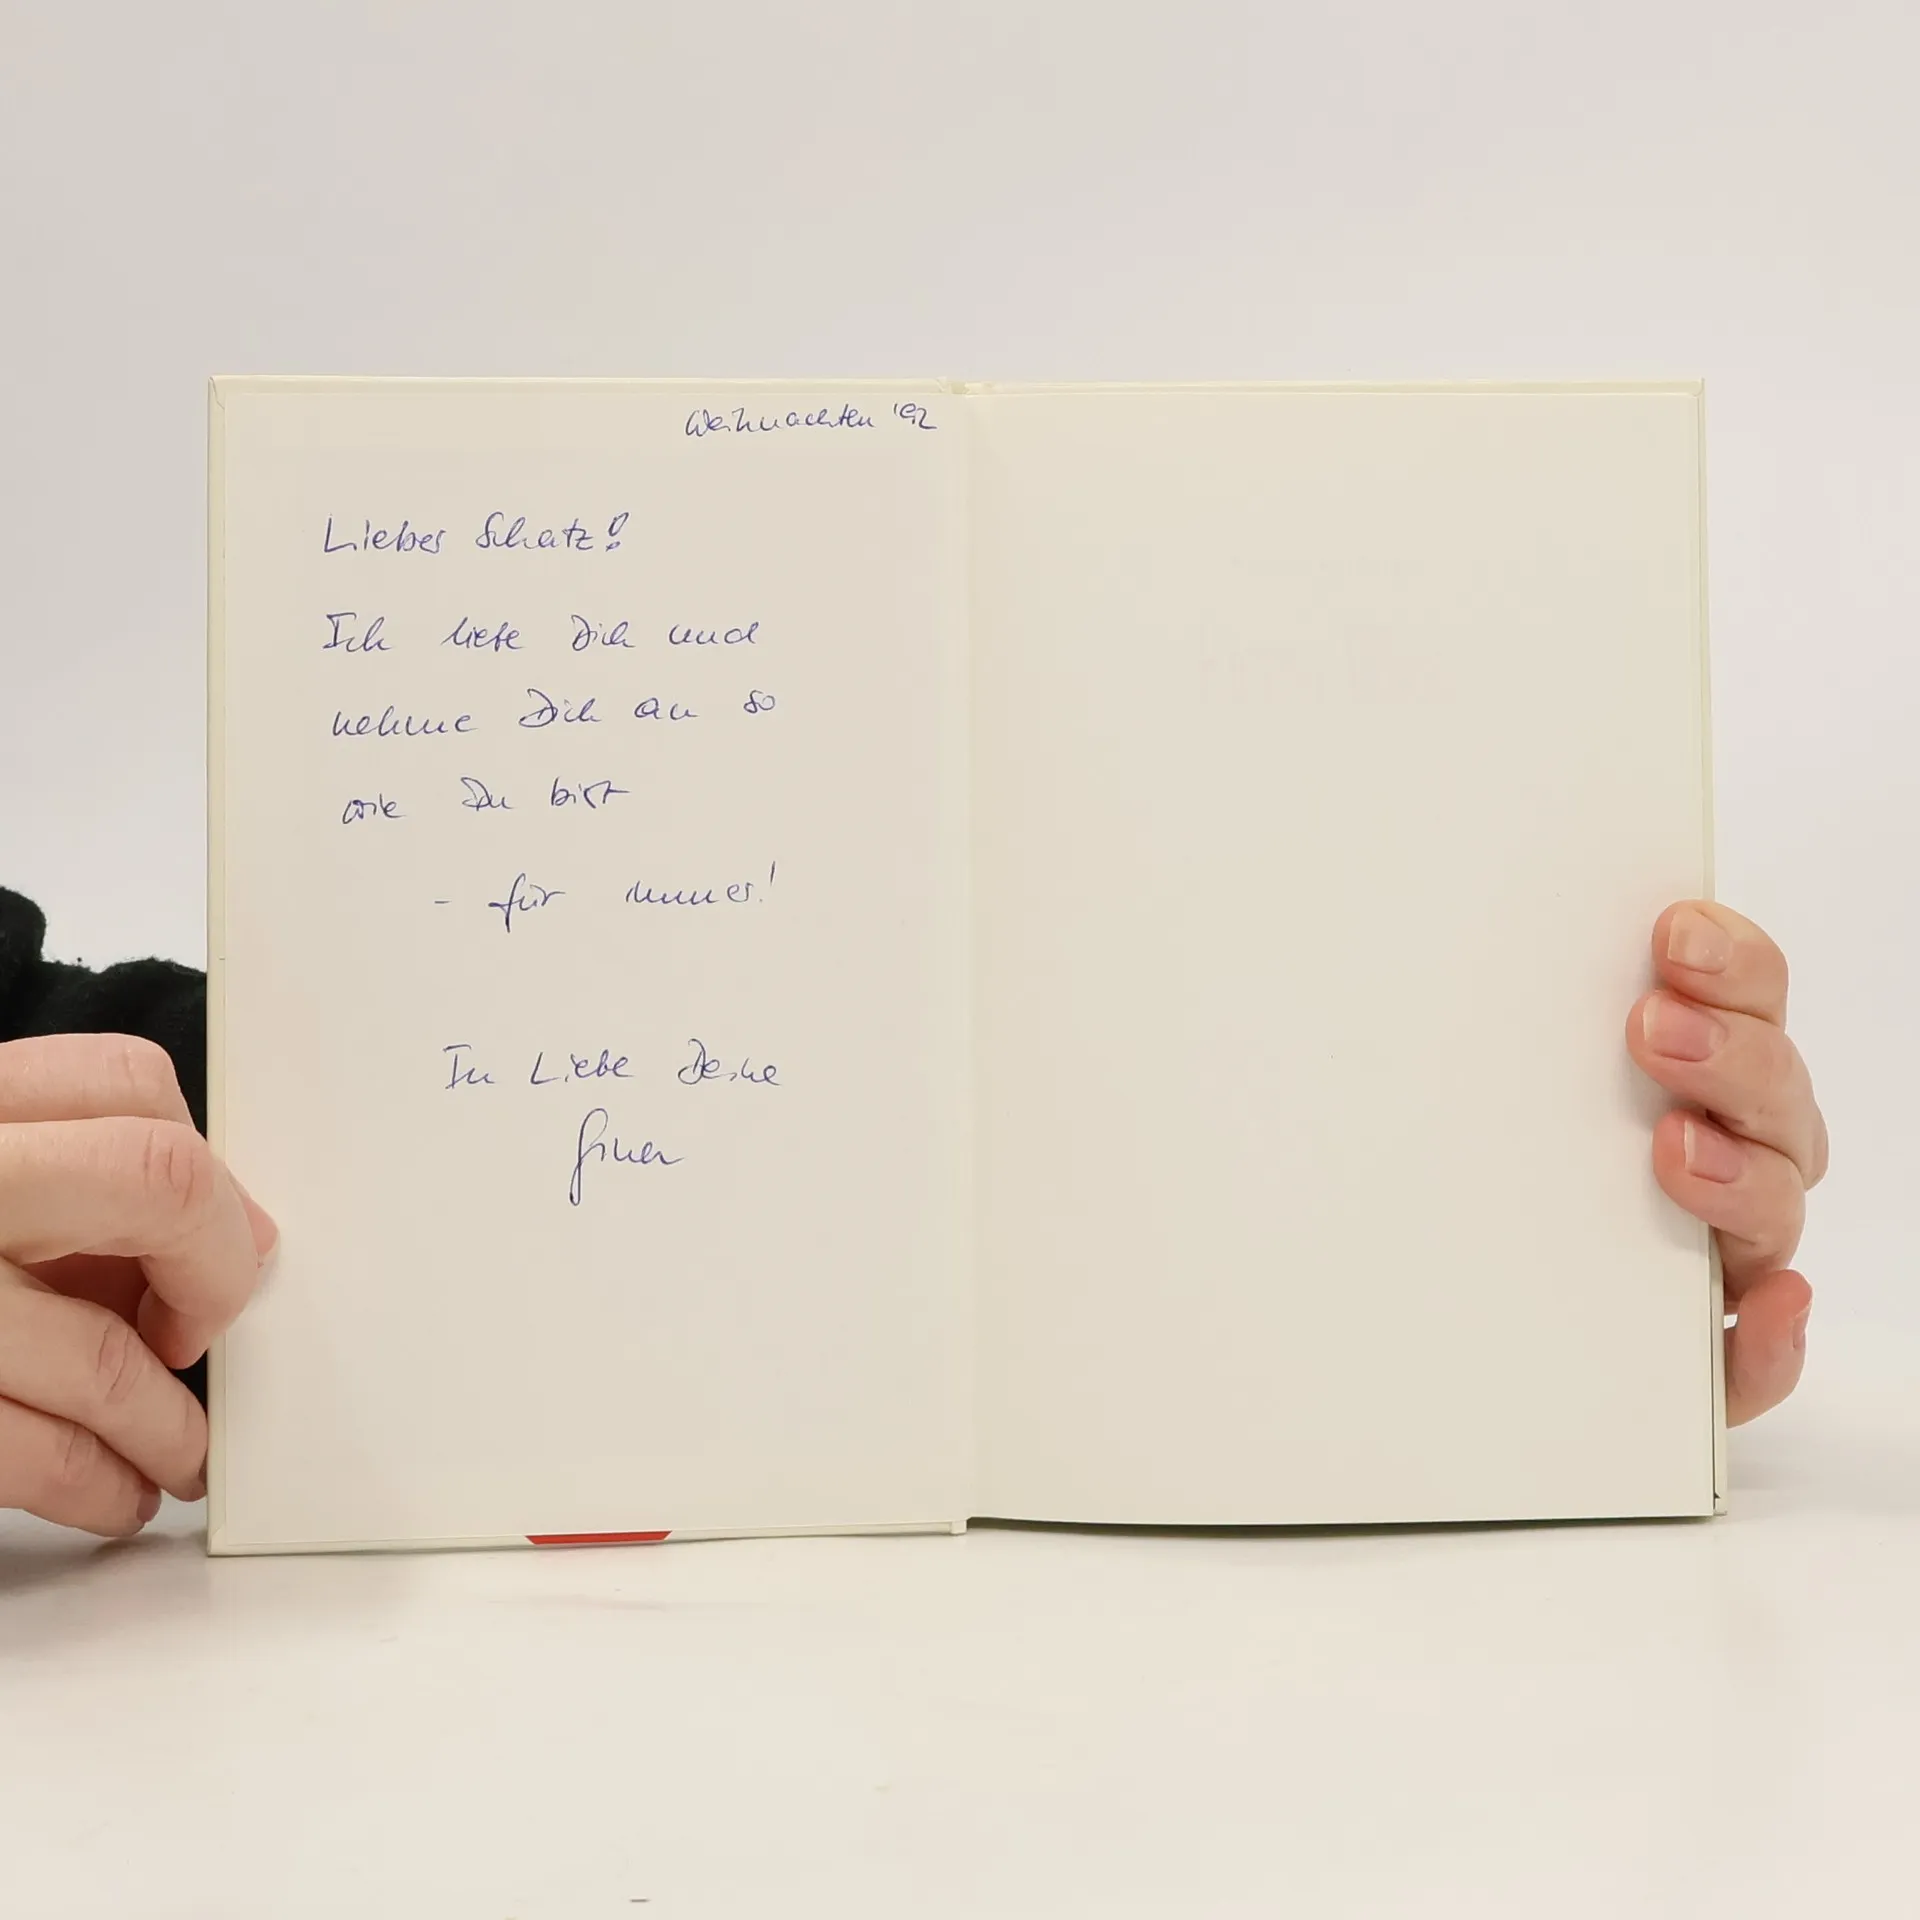 Weihnachten '92
Lieber Schatz!
Ich liebe Dich und
nehme Dich an so
wie Du bist
- für immer!
In Liebe Deine